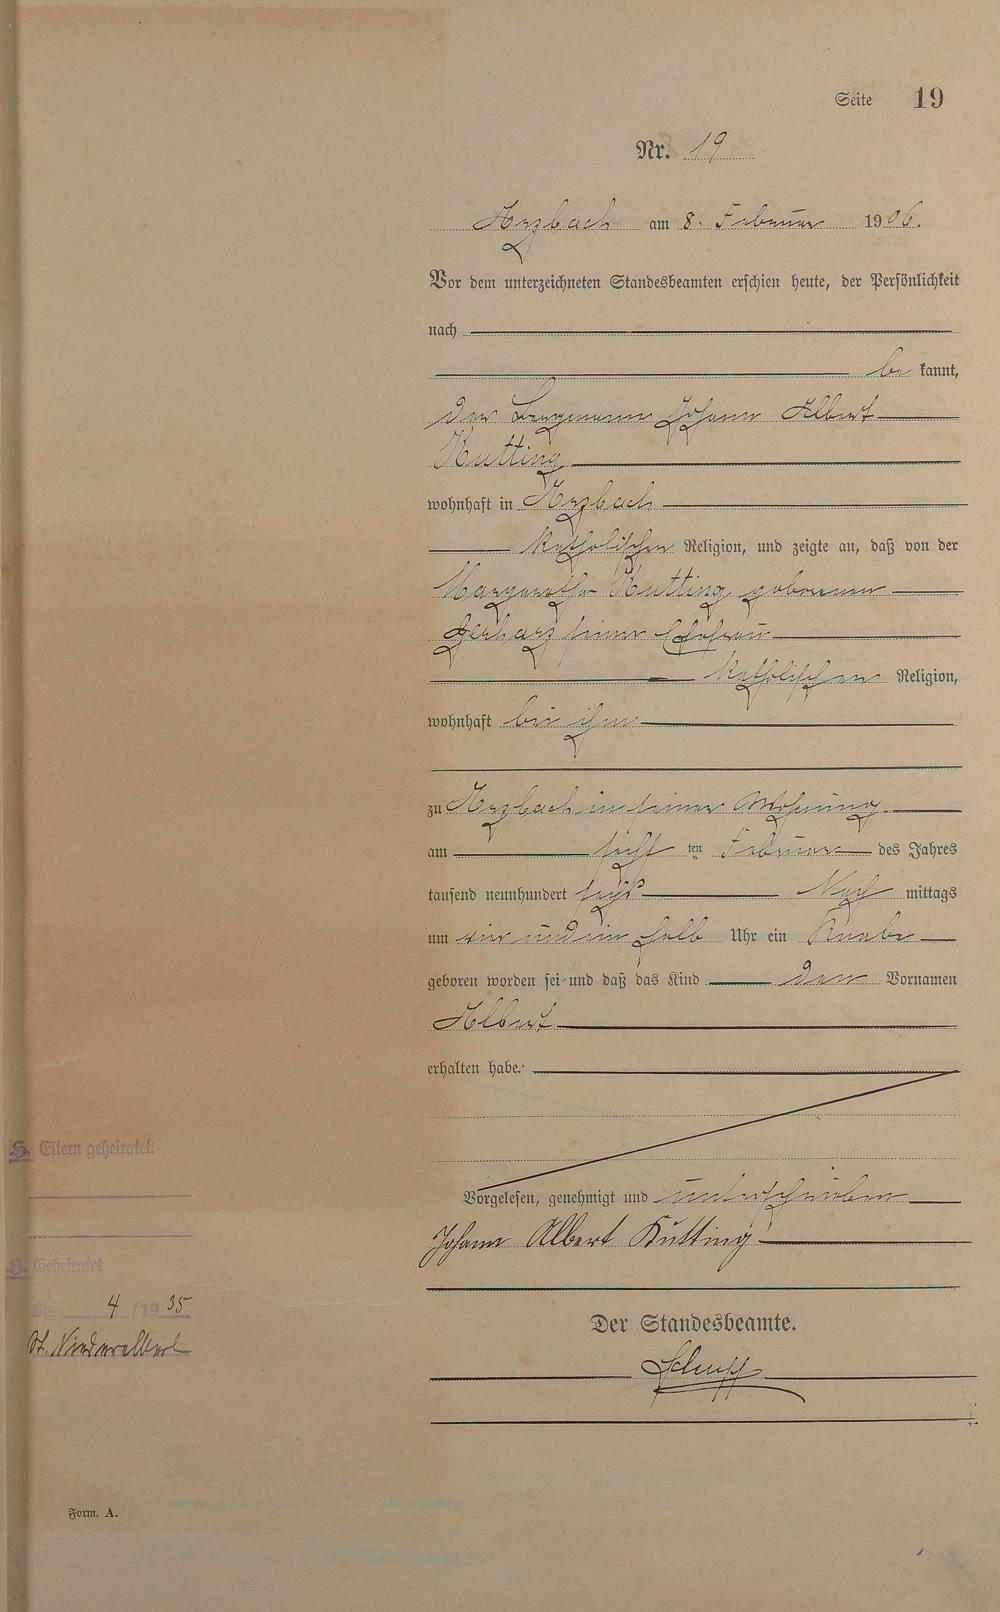 Seite 19
Nr. 19
Arzbach am 8. Februar 1906.
Vor dem unterzeichneten Standesbeamten erschien heute, der Persönlichkeit
nach
be kannt,
der Bergmann Johann Albert
Kutting
wohnhaft in Arzbach
katholischer Religion, und zeigte an, daß von der
Margaretha Kutting geborenen
Gerharz seiner Ehefrau
katholischen Religion,
wohnhaft bei ihm
zu Arzbach in seiner Wohnung
am sechs ten Februar des Jahres
tausend neunhundert sechs Nach mittags
um vier und ein halb Uhr ein Knabe
geboren worden sei und daß das Kind den Vornamen
Albert
erhalten habe.
Vorgelesen, genehmigt und unterschrieben
Johann Albert Kutting
Der Standesbeamte.
Eltern geheiratet:
Geheiratet
Nr. 4 /1935
St. Niederelbert
Form. A.